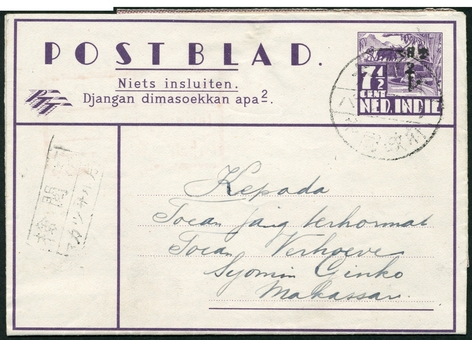 POSTBLAD.
Niets insluiten.
Djangan dimasoekkan apa².
PTT
7½
CENT
NED. INDIË
Kepada
Toean jang terhormat
Toean Verhoeve
Syomin Ginko
Makassar.